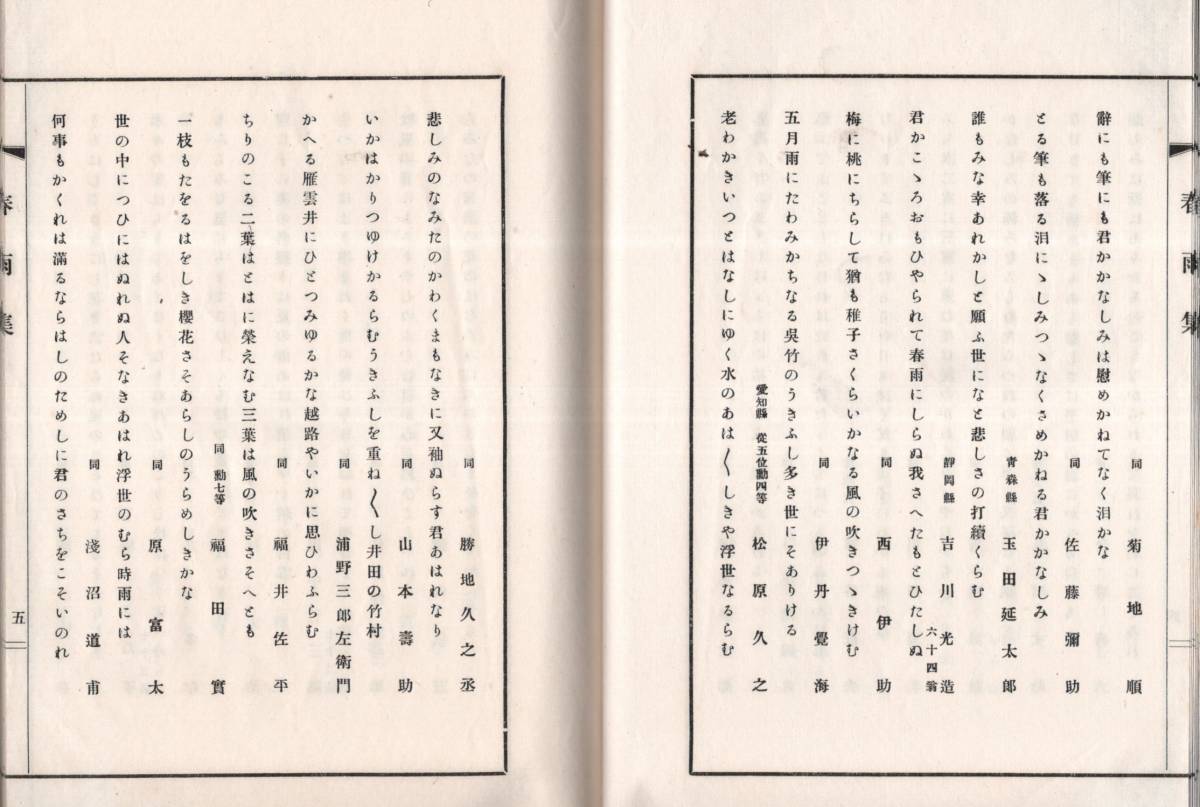 春雨集
同 菊地順
辭にも筆にも君かかなしみは慰めかねてなく泪かな
同 佐藤彌助
とる筆も落る泪にゝしみつゝなくさめかねる君かかなしみ
青森縣 玉田延太郎
誰もみな幸あれかしと願ふ世になと悲しさの打續くらむ
靜岡縣 吉川光造
六十四翁
君かこゝろおもひやられて春雨にしらぬ我さへたもとひたしぬ
同 西伊助
梅に桃にちらして猶も稚子さくらいかなる風の吹きつゝきけむ
同 伊丹覺海
五月雨にたわみかちなる吳竹のうきふし多き世にそありける
愛知縣 從五位勳四等 松原久之
老わかきいつとはなしにゆく水のあは〱しきや浮世なるらむ
同 勝地久之丞
悲しみのなみたのかわくまもなきに又袖ぬらす君あはれなり
同 山本壽助
いかはかりつゆけかるらむうきふしを重ね〱し井田の竹村
同 浦野三郎左衛門
かへる雁雲井にひとつみゆるかな越路やいかに思ひわふらむ
同 福井佐平
ちりのこる二葉はとはに榮えなむ三葉は風の吹きさそへとも
同 勳七等 福田實
一枝もたをるはをしき櫻花さそあらしのうらめしきかな
同 原富太
世の中につひにはぬれぬ人そなきあはれ浮世のむら時雨には
同 淺沼道甫
何事もかくれは滿るならはしのためしに君のさちをこそいのれ
春雨集
五